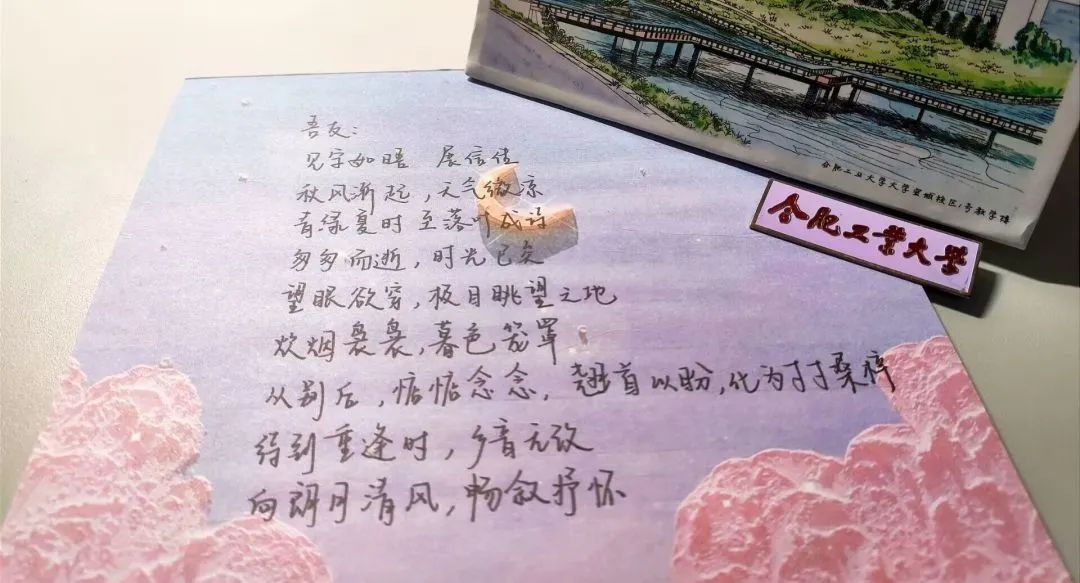 吾友：
见字如晤 展信佳
秋风渐起，天气微凉
青绿夏时至落叶成诗
匆匆而逝，时光已矣
望眼欲穿，极目眺望之地
炊烟袅袅，暮色笼罩
从别后，惦惦念念，翘首以盼，化为寸寸桑梓
待到重逢时，乡音无改
向朗月清风，畅叙抒怀
合肥工业大学大学宣城校区1号教学楼
合肥工业大学